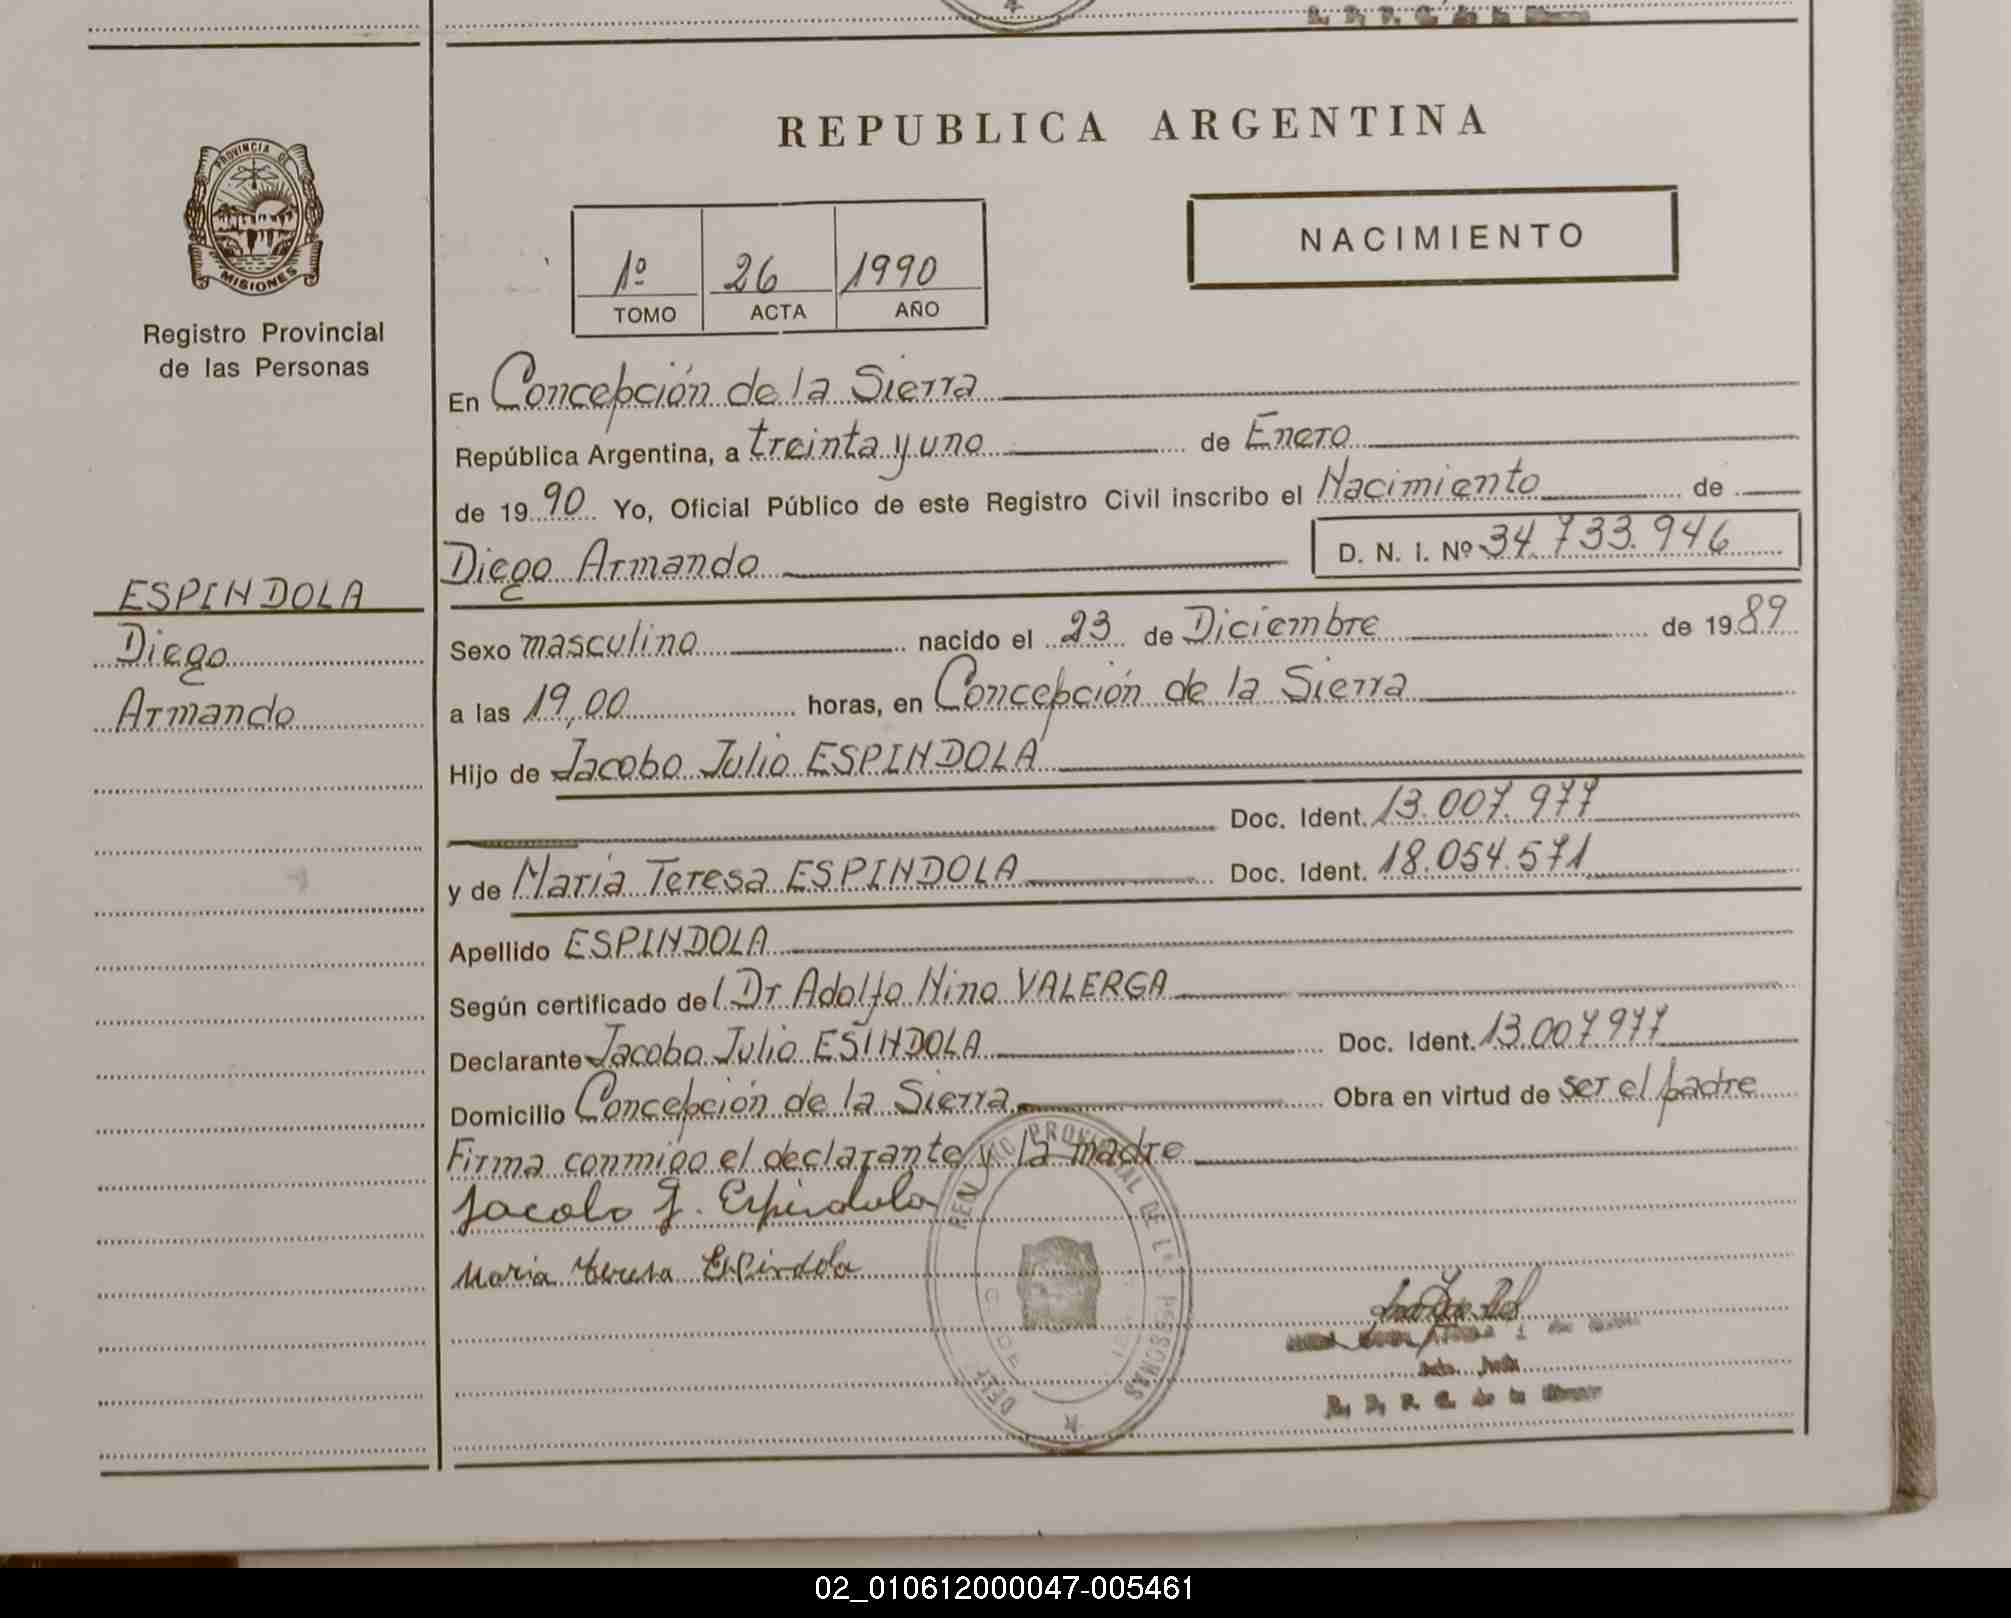 REPUBLICA ARGENTINA
PROVINCIA DE
MISIONES
Registro Provincial
de las Personas
NACIMIENTO
1º 26 1990
TOMO ACTA AÑO
En Concepción de la Sierra
República Argentina, a treinta y uno de Enero
de 1990 Yo, Oficial Público de este Registro Civil inscribo el Nacimiento de
Diego Armando D. N. I. Nº 34.733.946
ESPINDOLA
Diego
Armando
Sexo masculino nacido el 23 de Diciembre de 1989
a las 19,00 horas, en Concepción de la Sierra
Hijo de Jacobo Julio ESPINDOLA
Doc. Ident. 13.007.977
y de María Teresa ESPINDOLA Doc. Ident. 18.054.571
Apellido ESPINDOLA
Según certificado del Dr Adolfo Nino VALERGA
Declarante Jacobo Julio ESINDOLA Doc. Ident. 13.007977
Domicilio Concepción de la Sierra Obra en virtud de ser el padre
Firma conmigo el declarante y la madre
Jacobo J. Espindola
Maria teresa Espindola
PROVINCIAL DE
PERSONAS
02_010612000047-005461